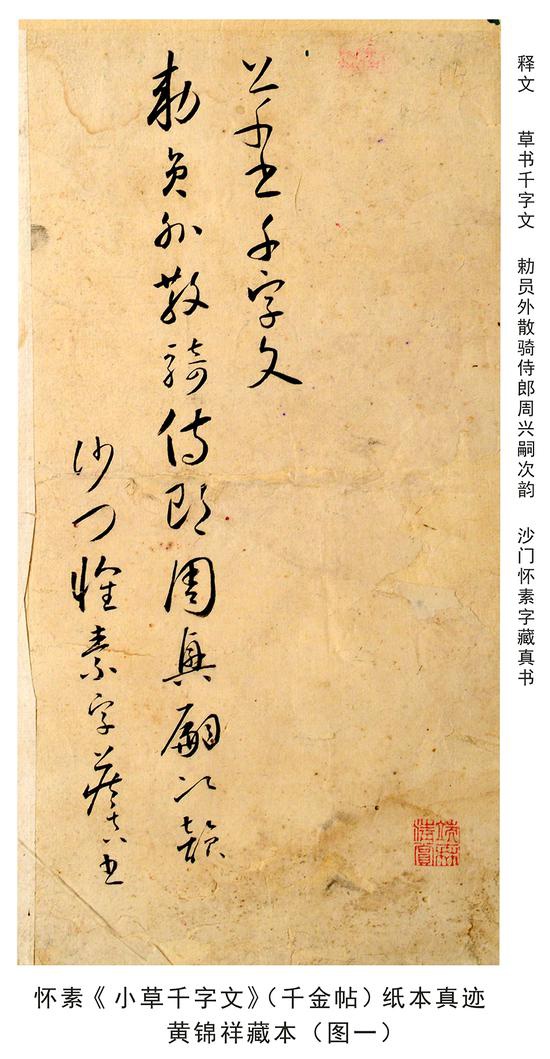 释文 草书千字文 勅员外散骑侍郎周兴嗣次韵 沙门怀素字藏真书
草书千字文
勅員外散騎侍郎周興嗣次韻
沙门懷素字藏真书
怀素《小草千字文》（千金帖）纸本真迹
黄锦祥藏本（图一）